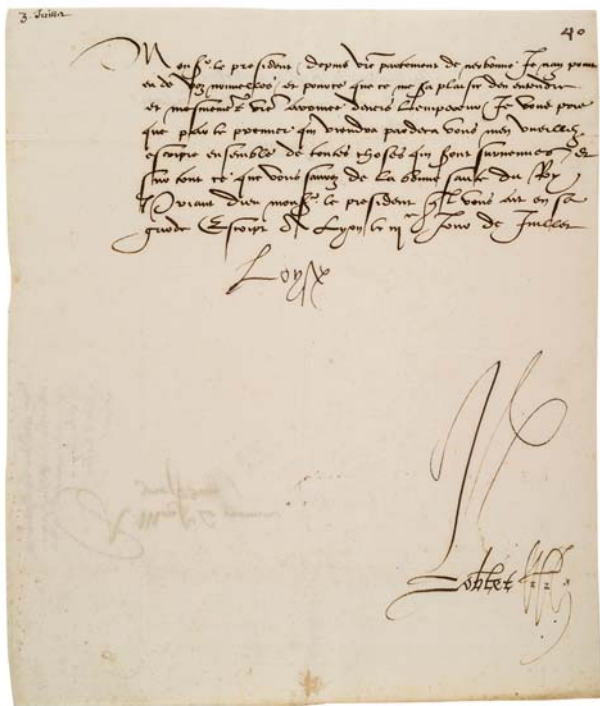 3. Juillet
40
Mons.r le president depuis v're partement de nerbonne Je nay point
eu de voz nouvelles et pource que ce me sa plaisir den entendre
et mesmement v're devers Lempereur Je vous prie
que par le premier qui viendra pardeca vous men vueillez
escripre ensemble de toutes choses qui sont survenues et
sur tout ce que vous saurez de la bonne sante du Roy
Priant dieu mons.r le president quil vous ait en sa
garde Escript de Lyon le iii.e Jour de Juillet
Loyse
Robertet